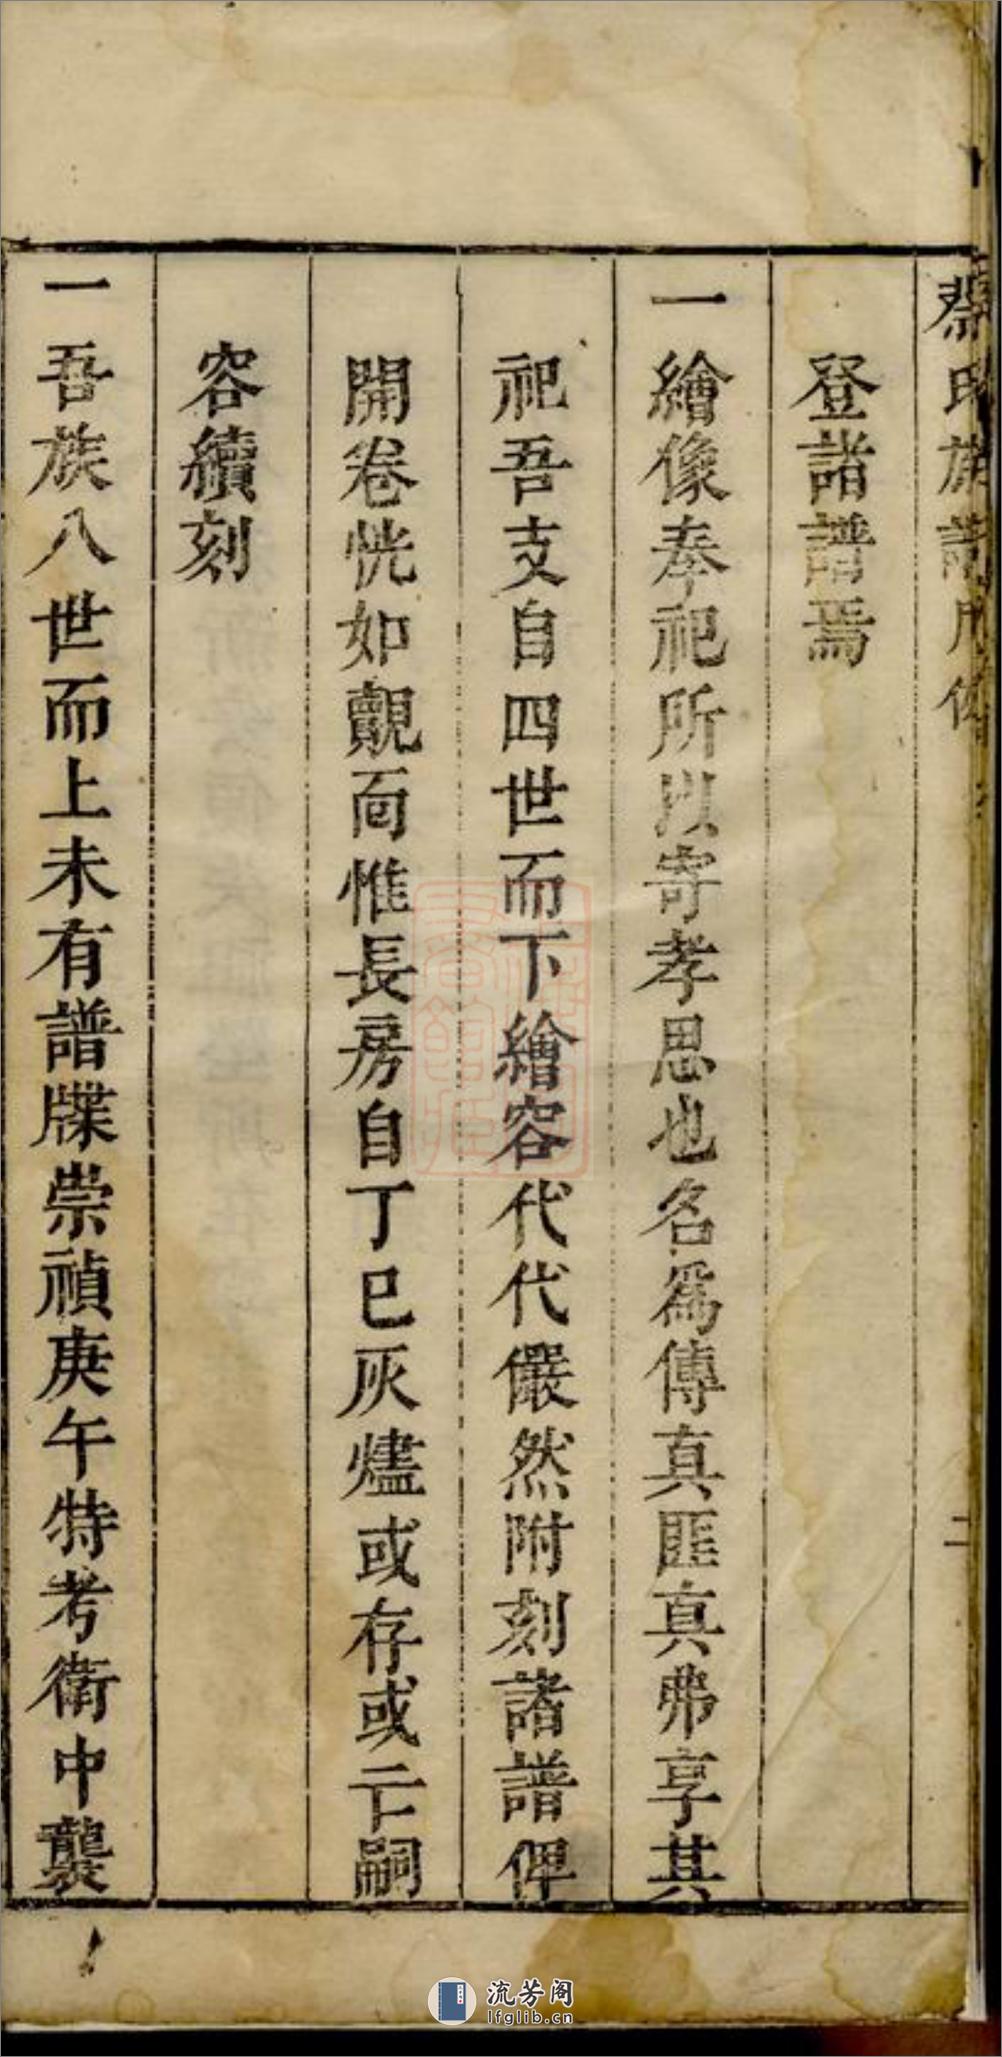 蔡氏族譜凡例
二
登諸譜焉
一繪像奉祀所以寄孝思也名為傳真匪真弗享其
祀吾支自四世而下繪容代代儼然附刻諸譜俾
開卷恍如覿面惟長房自丁巳灰燼或存或亡嗣
容續刻
一吾族八世而上未有譜牒崇禎庚午特考衛中襲
流芳阁
lfglib.cn